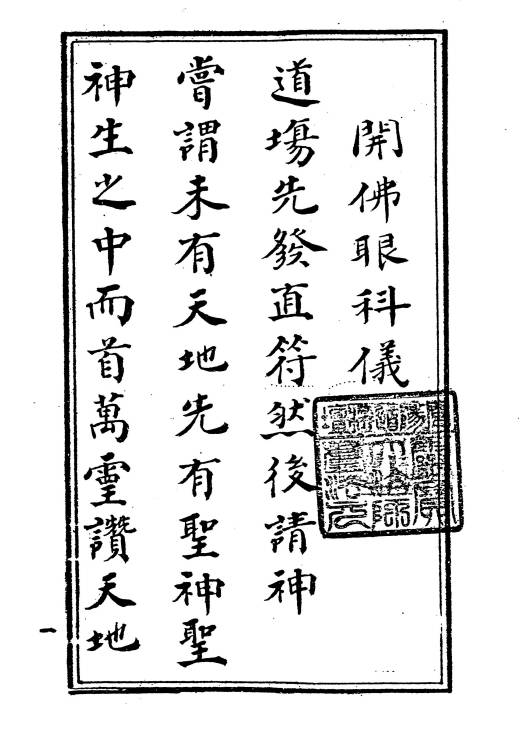 開佛眼科儀
道塲先發直符然後請神
嘗謂未有天地先有聖神聖
神生之中而首萬𩂳讚天地
一